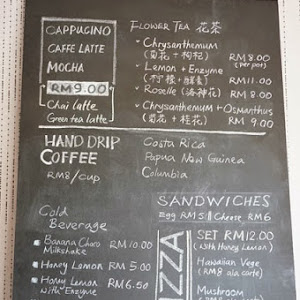 CAPPUCINO
CAFFE LATTE
MOCHA
RM 9.00
Chai latte
Green tea latte
FLOWER TEA 花茶
Chrysanthemum
(菊花 + 枸杞) RM 8.00
(per pot)
Lemon + Enzyme
(柠檬 + 酵素) RM 11.00
Roselle (洛神花) RM 8.00
Chrysanthemum + Osmanthus
(菊花 + 桂花) RM 9.00
HAND DRIP
COFFEE
RM8/CUP
Costa Rica
Papua New Guinea
Columbia
SANDWICHES
Egg RM 5 Cheese RM 6
Cold
Beverage
Banana Choco RM 10.00
Milkshake
Honey Lemon RM 5.00
Honey Lemon RM 6.50
with Enzyme
PIZZA
SET RM 12.00
(with Honey Lemon)
Hawaiian Vege
(RM 8 ala carte)
Mushroom